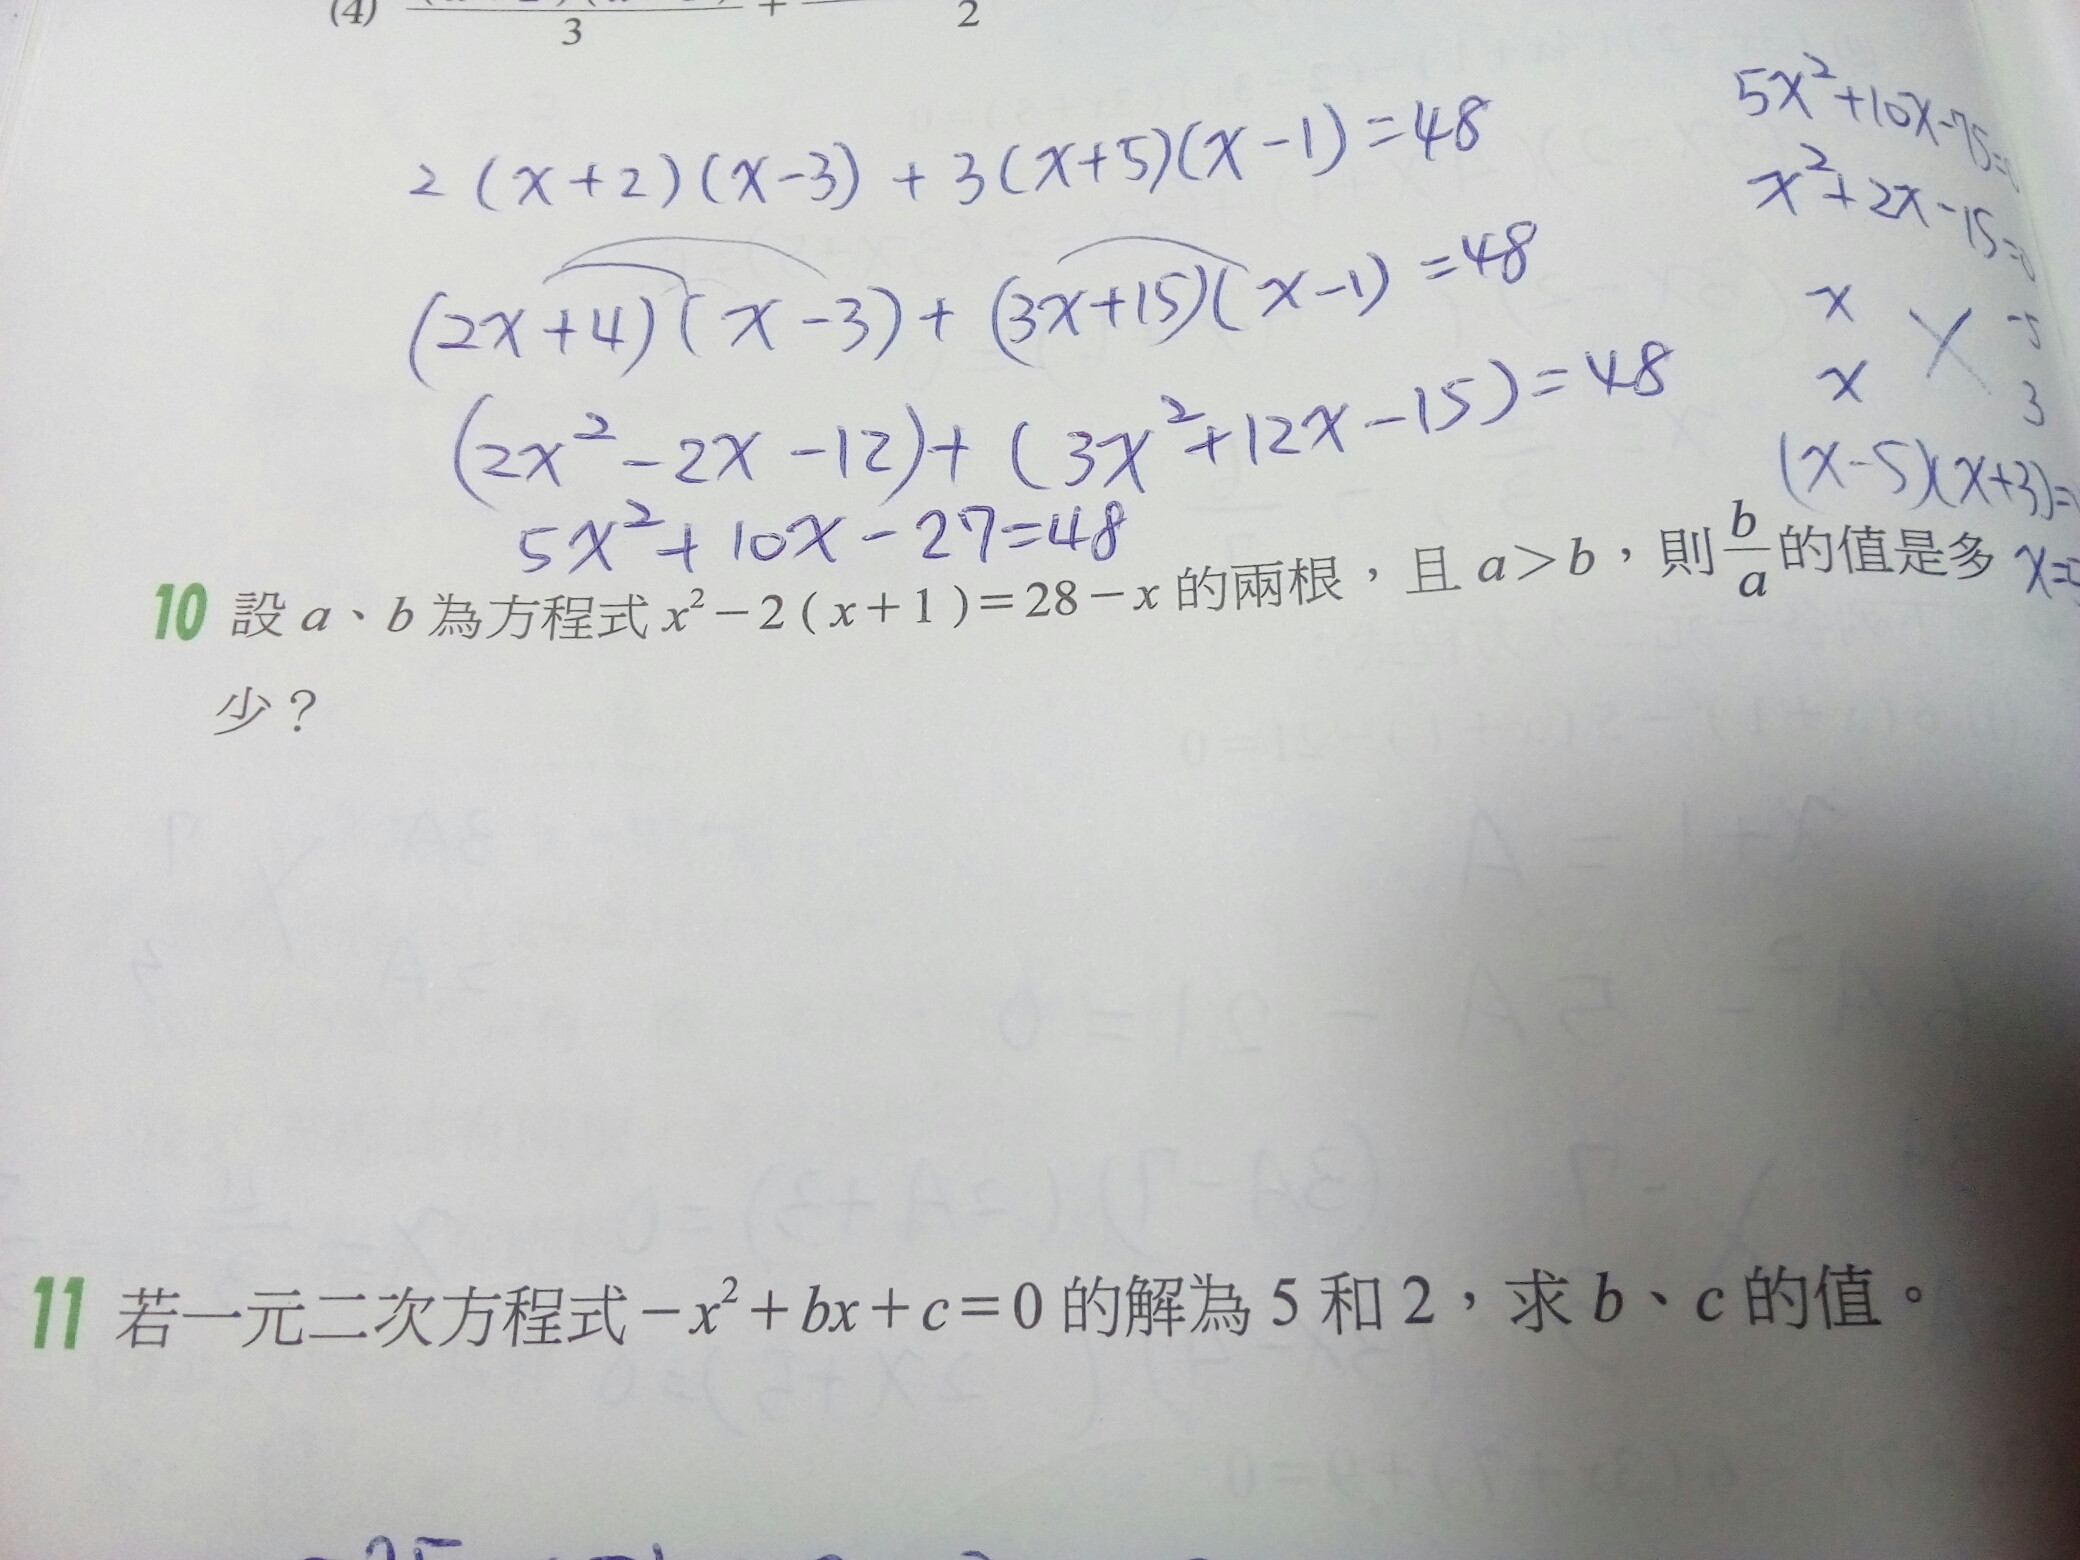 (4) 3 + 2
2(x+2)(x-3)+3(x+5)(x-1)=48
(2x+4)(x-3)+(3x+15)(x-1)=48
(2x²-2x-12)+(3x²+12x-15)=48
5x²+10x-27=48
5x²+10x-75=0
x²+2x-15=0
x -5
x 3
(x-5)(x+3)=
x=5
10 設 a、b 為方程式 x²-2(x+1)=28-x 的兩根,且 a>b,則 b/a 的值是多
少?
11 若一元二次方程式-x²+bx+c=0 的解為 5 和 2,求 b、c 的值。